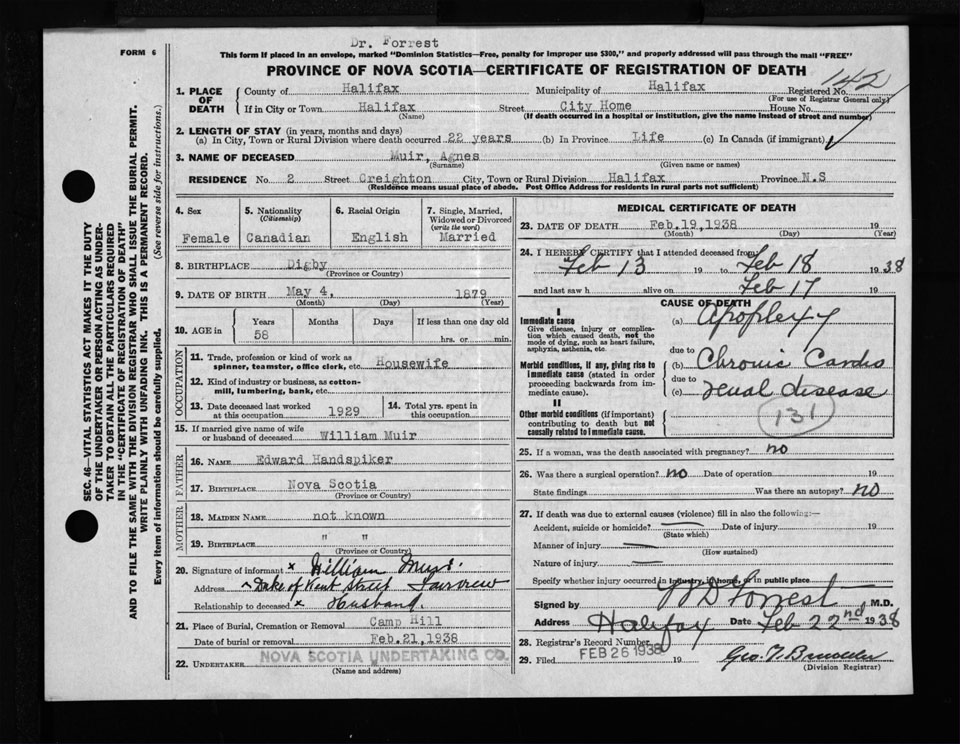 Dr. Forrest
FORM 6
This form if placed in an envelope, marked "Dominion Statistics—Free, penalty for improper use $300," and properly addressed will pass through the mail "FREE"
PROVINCE OF NOVA SCOTIA—CERTIFICATE OF REGISTRATION OF DEATH
142
1. PLACE OF DEATH
County of Halifax Municipality of Halifax Registered No.
(For use of Registrar General only)
If in City or Town Halifax Street City Home House No.
(Name) (If death occurred in a hospital or institution, give the name instead of street and number)
2. LENGTH OF STAY (in years, months and days)
(a) In City, Town or Rural Division where death occurred 22 years (b) In Province Life (c) In Canada (if immigrant)
3. NAME OF DECEASED Muir, Agnes
(Surname) (Given name or names)
RESIDENCE No. 2 Street Creighton City, Town or Rural Division Halifax Province N.S
(Residence means usual place of abode. Post Office Address for residents in rural parts not sufficient)
4. Sex
Female
5. Nationality
(Citizenship)
Canadian
6. Racial Origin
English
7. Single, Married,
Widowed or Divorced
(write the word)
Married
8. BIRTHPLACE Digby
(Province or Country)
9. DATE OF BIRTH May 4, 1879
(Month) (Day) (Year)
10. AGE in
Years Months Days If less than one day old
58 hrs. or min.
OCCUPATION
11. Trade, profession or kind of work as
spinner, teamster, office clerk, etc. Housewife
12. Kind of industry or business, as cotton-
mill, lumbering, bank, etc.
13. Date deceased last worked
at this occupation 1929
14. Total yrs. spent in
this occupation
15. If married give name of wife
or husband of deceased William Muir
FATHER
16. NAME Edward Handspiker
17. BIRTHPLACE Nova Scotia
(Province or Country)
MOTHER
18. MAIDEN NAME not known
19. BIRTHPLACE " "
(Province or Country)
20. Signature of informant x William Muir
Address x Duke of Kent Street Fairview
Relationship to deceased x Husband.
21. Place of Burial, Cremation or Removal Camp Hill
Date of burial or removal Feb.21,1938
22. UNDERTAKER NOVA SCOTIA UNDERTAKING CO.
(Name and address)
MEDICAL CERTIFICATE OF DEATH
23. DATE OF DEATH Feb.19,1938
(Month) (Day) (Year)
24. I HEREBY CERTIFY that I attended deceased from
Feb 13 19 to Feb 18 1938
and last saw h alive on Feb 17 19
CAUSE OF DEATH
I
Immediate cause
Give disease, injury or complica-
tion which caused death, not the
mode of dying, such as heart failure,
asphyxia, asthenia, etc.
(a) Apoplexy
due to
Morbid conditions, if any, giving rise to
immediate cause (stated in order
proceeding backwards from im-
mediate cause).
(b) Chronic Cardio
due to
(c) renal disease
II
Other morbid conditions (if important)
contributing to death but not
causally related to immediate cause.
131
25. If a woman, was the death associated with pregnancy? no
26. Was there a surgical operation? no Date of operation 19
State findings Was there an autopsy? no
27. If death was due to external causes (violence) fill in also the following:—
Accident, suicide or homicide? — Date of injury 19
(State which)
Manner of injury —
(How sustained)
Nature of injury —
Specify whether injury occurred in industry, in home, or in public place
Signed by Forrest M.D.
Address Halifax Date Feb 22nd 1938
28. Registrar's Record Number
29. Filed FEB 26 1938 19
(Division Registrar)
SEC. 46—VITAL STATISTICS ACT MAKES IT THE DUTY
OF THE UNDERTAKER OR PERSON ACTING AS UNDER-
TAKER TO OBTAIN ALL THE PARTICULARS REQUIRED
IN THE "CERTIFICATE OF REGISTRATION OF DEATH"
AND TO FILE THE SAME WITH THE DIVISION REGISTRAR WHO SHALL ISSUE THE BURIAL PERMIT.
WRITE PLAINLY WITH UNFADING INK. THIS IS A PERMANENT RECORD.
Every item of information should be carefully supplied. (See reverse side for instructions.)